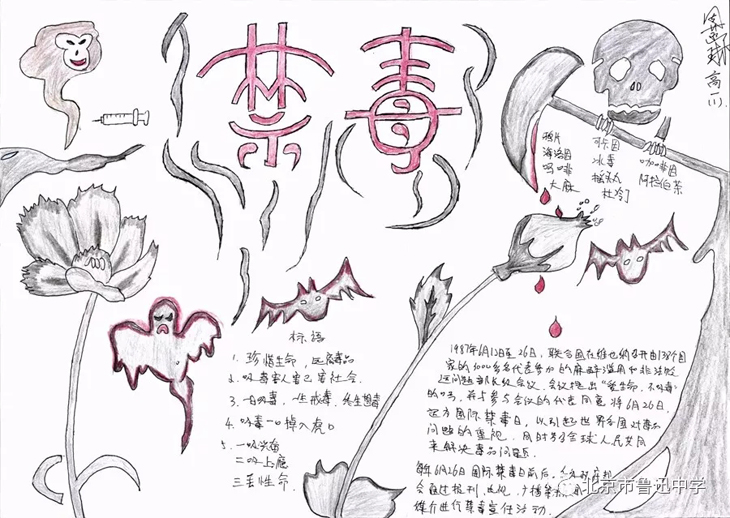 禁毒
高一(1)
鸦片 可卡因
海洛因 冰毒 咖啡因
吗啡 摇头丸 阿拉伯茶
大麻 杜冷丁
标语
1. 珍惜生命，远离毒品
2. 吸毒害人害己害社会.
3. 一日吸毒，一生戒毒，终生想毒
4. 吸毒一口掉入虎口
5. 一吸兴奋
二吸上瘾
三丢性命.
1987年6月12日至26日，联合国在维也纳召开由138个国
家的3000多名代表参加的麻醉滥用和非法贩
运问题部长级会议，会议提出“爱生命，不吸毒”
的口号，并与参与会议的代表同意将6月26日
定为国际禁毒日，以引起世界各国对毒品
问题的重视，同时号召全球人民共同
来解决毒品问题.
每年6月26日国际禁毒日前后，
会通过报刊、电视、广播
媒介进行禁毒宣传活动.
北京市鲁迅中学